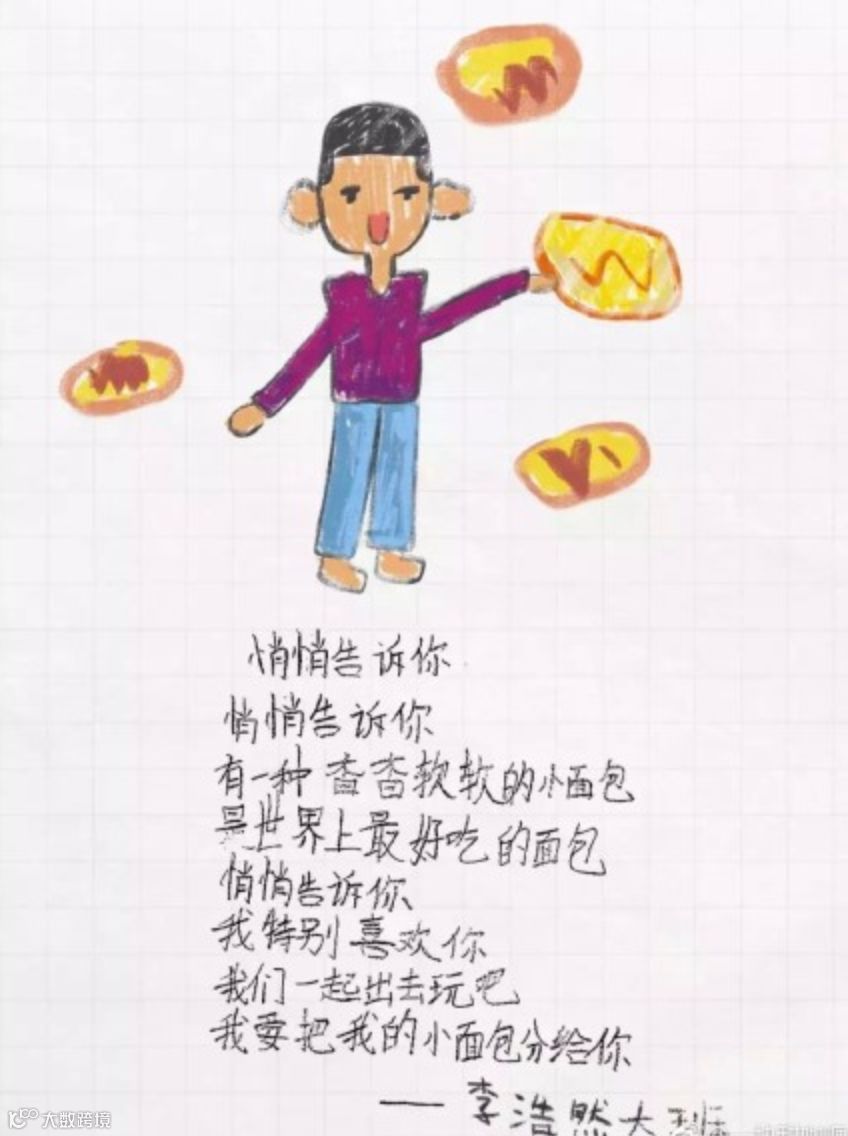 悄悄告诉你
悄悄告诉你
有一种香香软软的小面包
是世界上最好吃的面包
悄悄告诉你
我特别喜欢你
我们一起出去玩吧
我要把我的小面包分给你
——李浩然大班
大数跨境